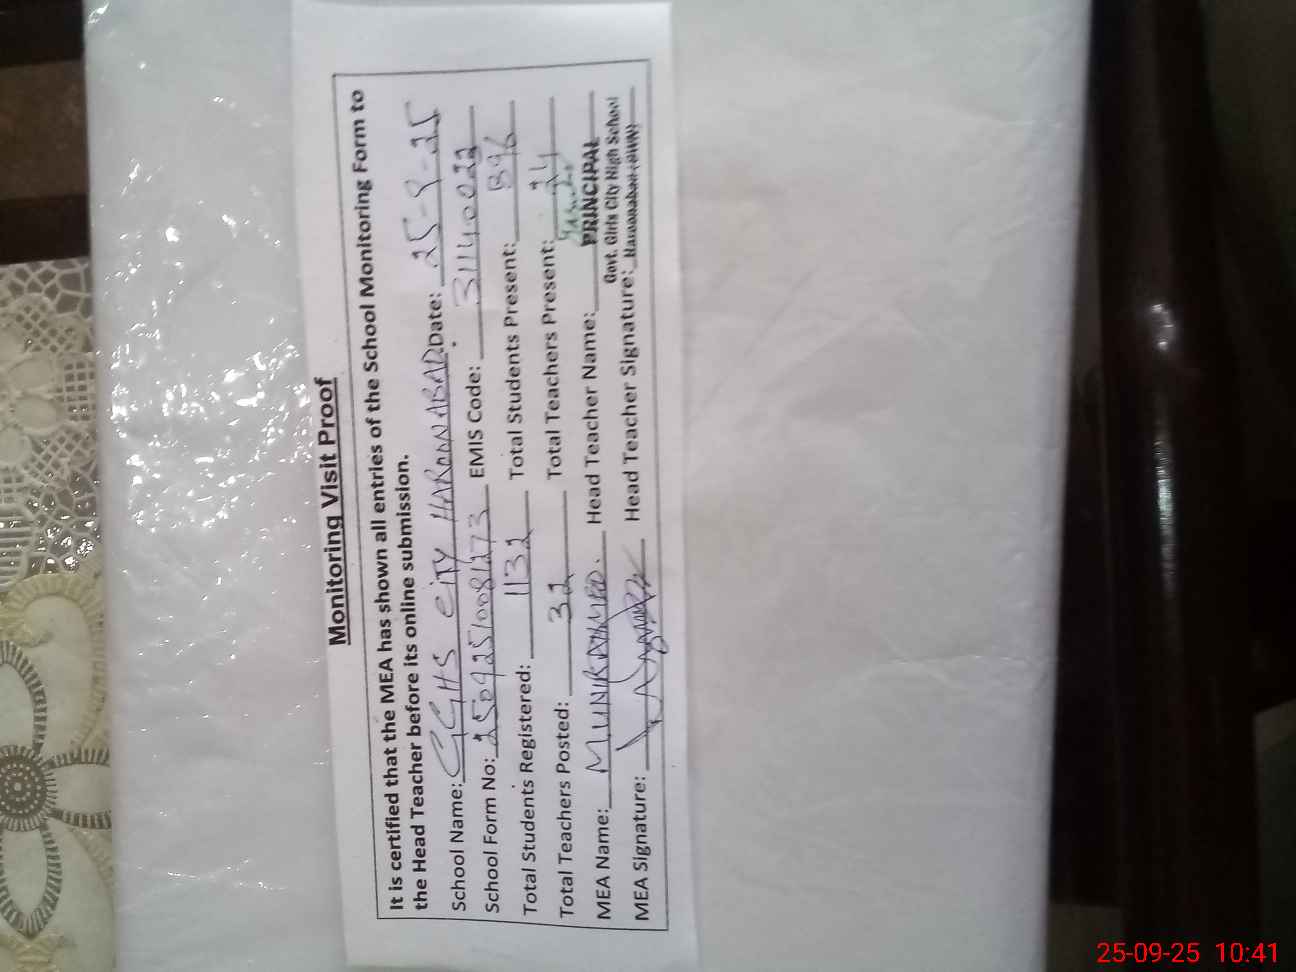 Monitoring Visit Proof
It is certified that the MEA has shown all entries of the School Monitoring Form to
the Head Teacher before its online submission.
School Name: GGHS CITY HAROONABAD Date: 25-9-25
School Form No: 25092510081273 EMIS Code: 31140022
Total Students Registered: 1132 Total Students Present: 896
Total Teachers Posted: 32 Total Teachers Present: 24
MEA Name: M.UNIR AHMED. Head Teacher Name: PRINCIPAL
Govt. Girls City High School
MEA Signature: Head Teacher Signature: Haroonabad (BWN)
25-09-25 10:41